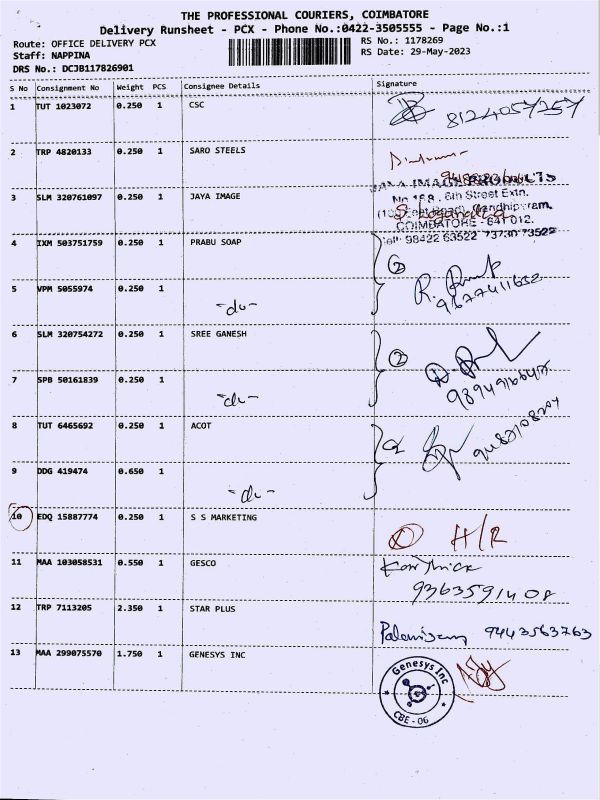 THE PROFESSIONAL COURIERS, COIMBATORE
Delivery Runsheet - PCX - Phone No.:0422-3505555 - Page No.:1
Route: OFFICE DELIVERY PCX
Staff: NAPPINA
DRS No.: DCJB117826901
RS No.: 1178269
RS Date: 29-May-2023
S No Consignment No Weight PCS Consignee Details Signature
1 TUT 1023072 0.250 1 CSC 8124057257
2 TRP 4820133 0.250 1 SARO STEELS
3 SLM 320761097 0.250 1 JAYA IMAGE
JAYA IMAGE PRODUCTS
No 168, 6th Street Extn.
Gandhipuram,
COIMBATORE - 641 012.
Cell: 98422 63522 73730 73522
4 IXM 503751759 0.250 1 PRABU SOAP 2
5 VPM 5055974 0.250 1 -do- 9677411652
6 SLM 320754272 0.250 1 SREE GANESH 2
7 SPB 50161839 0.250 1 -do-
8 TUT 6465692 0.250 1 ACOT 2
9 DDG 419474 0.650 1 -do-
10 EDQ 15887774 0.250 1 S S MARKETING H/R
11 MAA 103058531 0.550 1 GESCO Karthick
9363591408
12 TRP 7113205 2.350 1 STAR PLUS Palanisamy 9443563763
13 MAA 299075570 1.750 1 GENESYS INC
Genesys Inc
CBE - 06